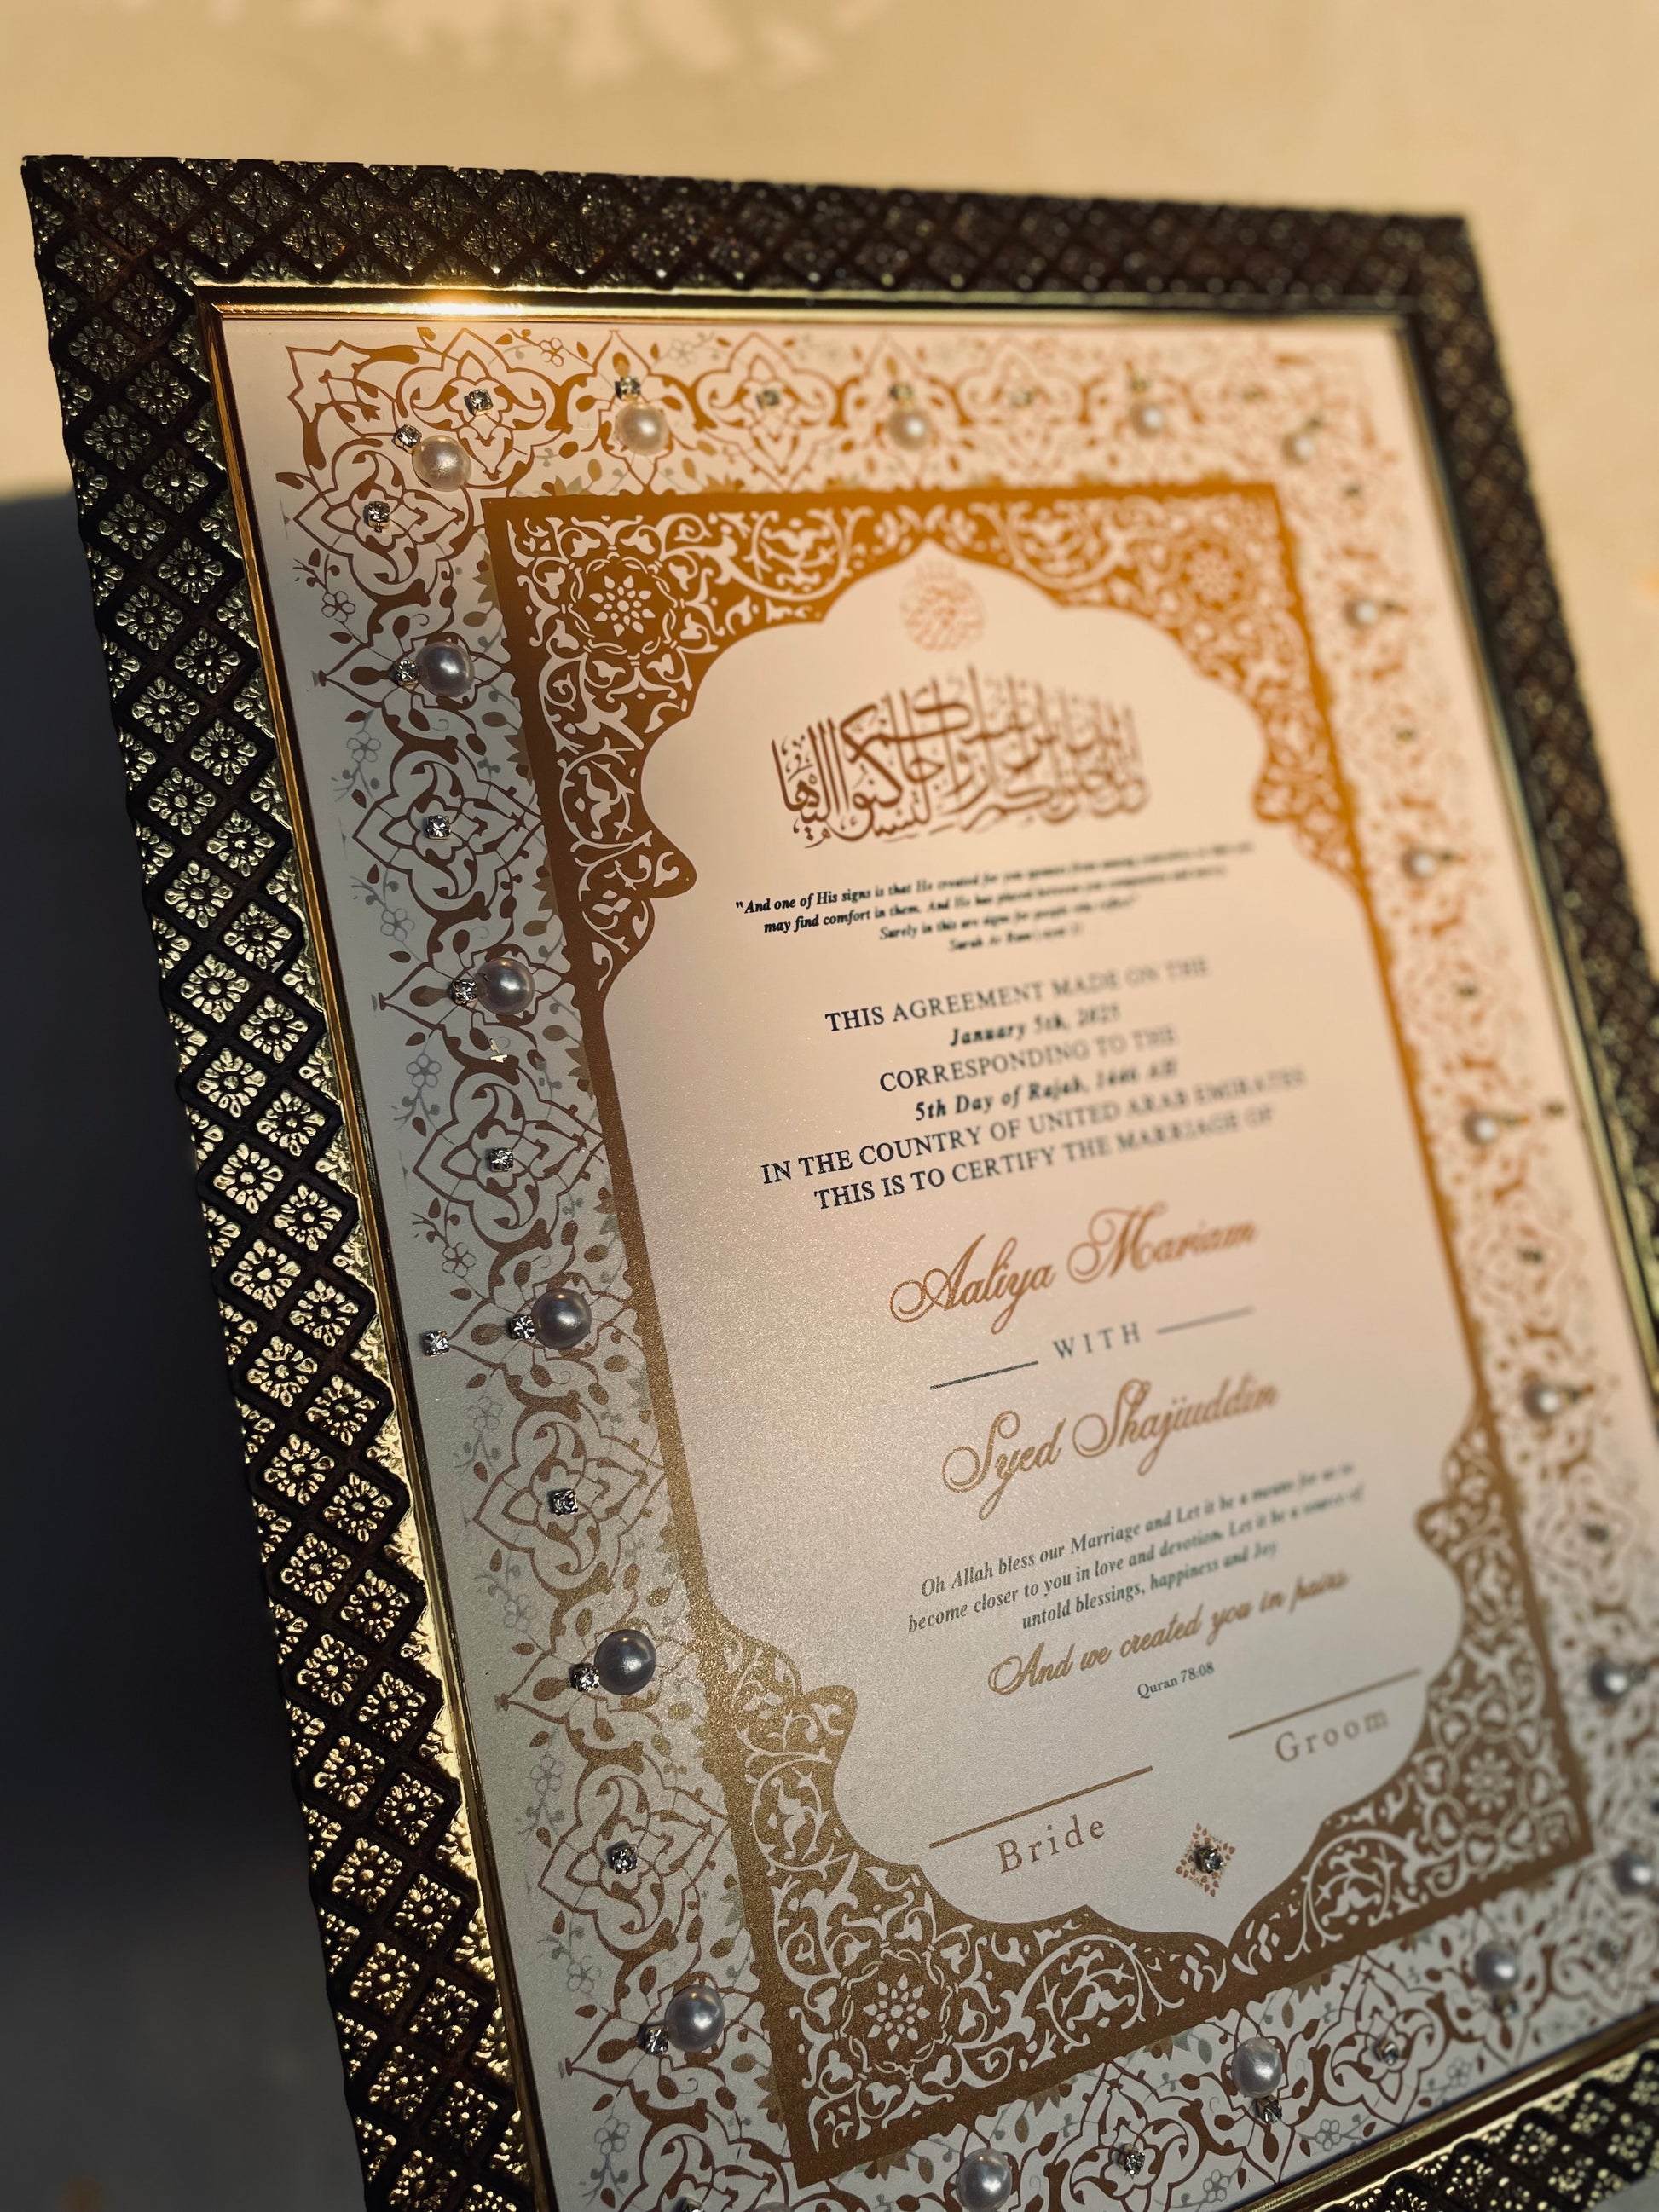 "And one of His signs is that He created for you spouses from among yourselves so that you
may find comfort in them. And He has placed between you compassion and mercy.
Surely in this are signs for people who reflect"
Surah Ar Rum
THIS AGREEMENT MADE ON THE
January 5th, 2025
CORRESPONDING TO THE
5th Day of Rajab, 1446 AH
IN THE COUNTRY OF UNITED ARAB EMIRATES
THIS IS TO CERTIFY THE MARRIAGE OF
Aaliya Mariam
WITH
Syed Shajiuddin
Oh Allah bless our Marriage and Let it be a means for us to
become closer to you in love and devotion. Let it be a source of
untold blessings, happiness and Joy
And we created you in pairs
Quran 78:08
Groom
Bride